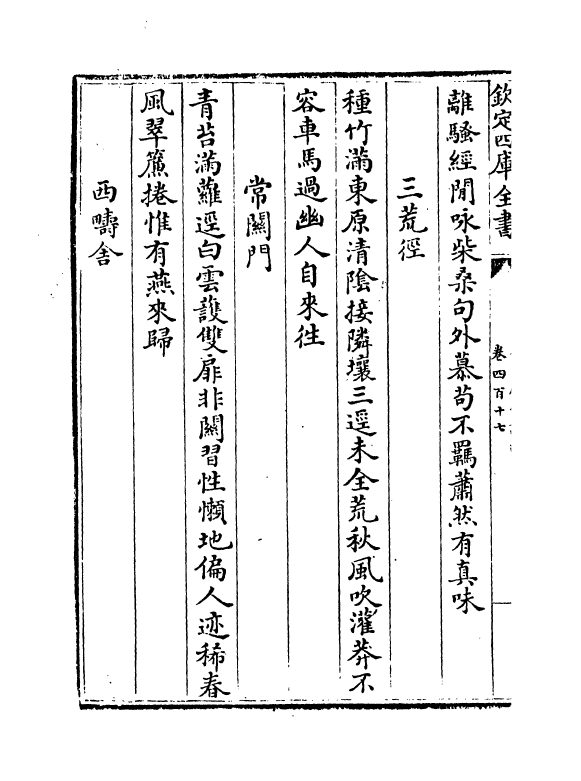 欽定四庫全書
卷四百十七
離騷經閒咏柴桑句外慕苟不羈蕭然有真味
三荒徑
種竹滿東原清陰接隣壤三逕未全荒秋風吹灌莽不
容車馬過幽人自來徃
常關門
青苔滿蘿逕白雲護雙扉非關習性懶地偏人迹稀春
風翠簾捲惟有燕來歸
西疇舍